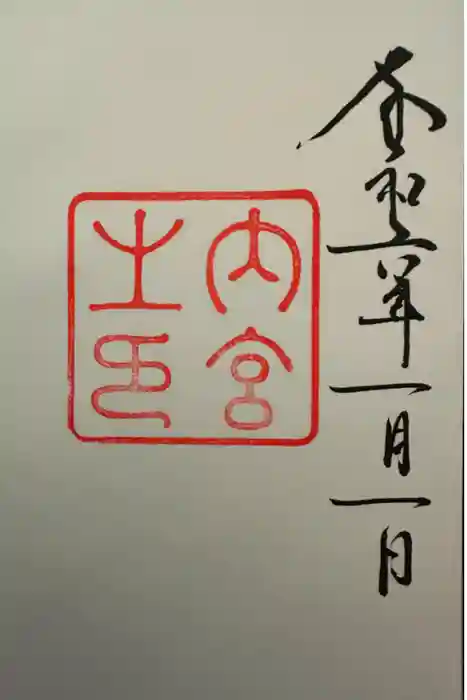 令和三年一月一日
内宮
之印